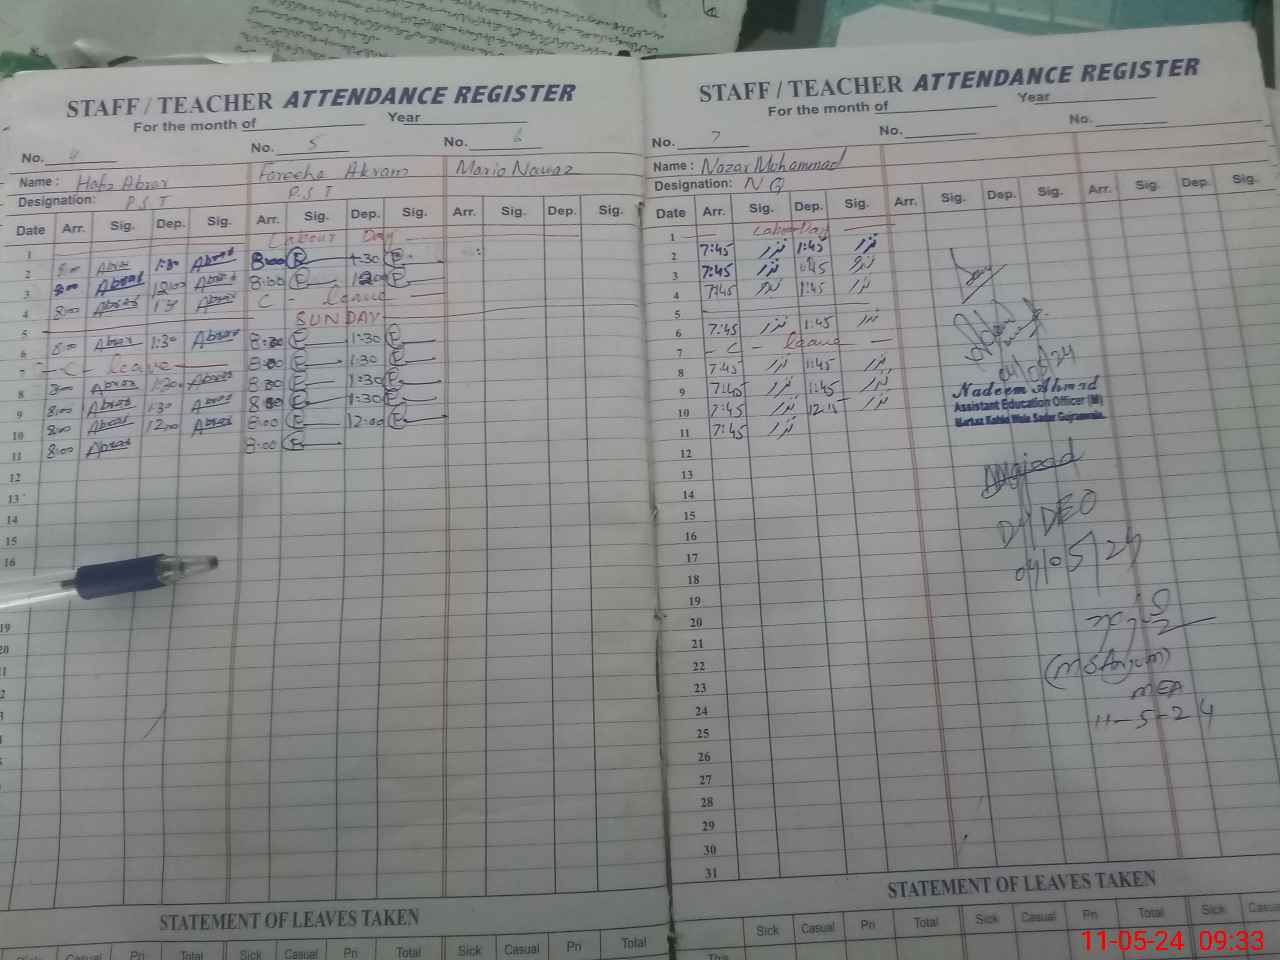 STAFF / TEACHER ATTENDANCE REGISTER
For the month of Year
No. 4 No. 5 No. 6
Name : Hafz Abrar Fareeha Akram Maria Nawaz
Designation: P.S.T P.S.T
Date Arr. Sig. Dep. Sig. Arr. Sig. Dep. Sig. Arr. Sig. Dep. Sig.
1 Labour Day
2 8:00 Abrar 1:30 Abrar 8:00 E 1:30 E
3 8:00 Abrar 12:00 Abrar 8:00 E 12:00 E
4 8:00 Abrar 1:30 Abrar C - leave
5 SUNDAY
6 8:00 Abrar 1:30 Abrar 8:00 E 1:30 E
7 - C - leave 8:00 E 1:30 E
8 8:00 Abrar 1:30 Abrar 8:00 E 1:30 E
9 8:00 Abrar 1:30 Abrar 8:00 E 1:30 E
10 8:00 Abrar 12:00 Abrar 8:00 E 12:00 E
11 8:00 Abrar 8:00 E
12
13
14
15
16
19
20
STATEMENT OF LEAVES TAKEN
Sick Casual Pri Total Sick Casual Pri Total
STAFF / TEACHER ATTENDANCE REGISTER
For the month of Year
No. 7 No. No.
Name : Nazar Mohammad
Designation: N Q
Date Arr. Sig. Dep. Sig. Arr. Sig. Dep. Sig. Arr. Sig. Dep. Sig.
1 Labour Day
2 7:45 نزر 1:45 نزر
3 7:45 نزر 1:45 نزر
4 7:45 نزر 1:45 نزر
5
6 7:45 نزر 1:45 نزر
7 - C - leave
8 7:45 نزر 1:45 نزر
9 7:45 نزر 1:45 نزر
10 7:45 نزر 12:15 نزر
11 7:45 نزر
12
13
14
15
16
17
18
19
20
21
22
23
24
25
26
27
28
29
30
31
04/05/24
Nadeem Ahmad
Assistant Education Officer (M)
Markaz Kohlo Wala Sadar Gujranwala.
Amjead
Dy DEO
04/05/24
(M S Anjum)
MEA
11-5-24
STATEMENT OF LEAVES TAKEN
Sick Casual Pri Total Sick Casual Pri Total Sick Casual
This
11-05-24 09:33